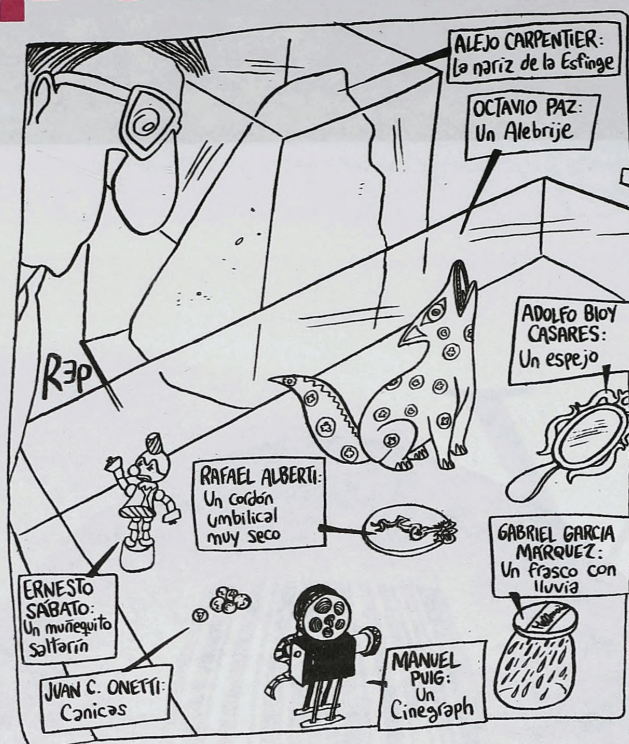 ALEJO CARPENTIER:
La nariz de la Esfinge
OCTAVIO PAZ:
Un Alebrije
ADOLFO BIOY
CASARES:
Un espejo
Rep
RAFAEL ALBERTI:
Un cordón
umbilical
muy seco
GABRIEL GARCIA
MARQUEZ:
Un frasco con
lluvia
ERNESTO
SABATO:
Un muñequito
saltarín
JUAN C. ONETTI:
Canicas
MANUEL
PUIG:
Un
Cinegraph